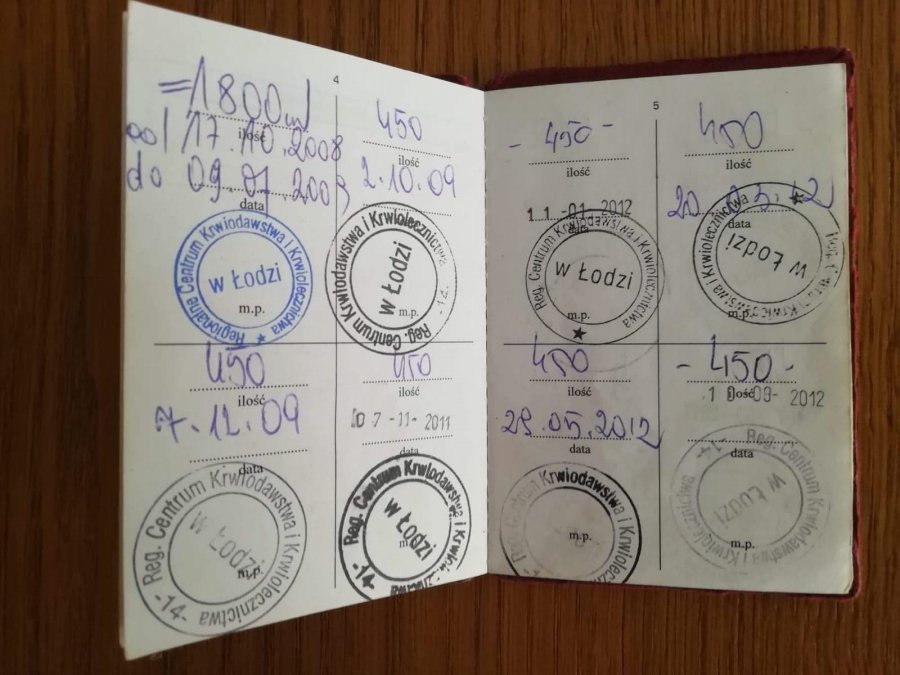 4
=1800ml
ilość
od 17.10.2008
do 09.07.2009
data
Regionalne Centrum Krwiodawstwa i Krwiolecznictwa
w Łodzi
m.p.
450
ilość
2.10.09
Reg. Centrum Krwiodawstwa i Krwiolecznictwa
w Łodzi
-14-
m.p.
450
ilość
7.12.09
data
Reg. Centrum Krwiodawstwa i Krwiolecznictwa
w Łodzi
-14-
m.p.
450
ilość
07-11-2011
data
Reg. Centrum Krwiodawstwa i Krwiolecznictwa
w Łodzi
-14-
m.p.
5
- 450 -
ilość
11-01-2012
data
Reg. Centrum Krwiodawstwa i Krwiolecznictwa
w Łodzi
m.p.
450
ilość
data
Reg. Centrum Krwiodawstwa i Krwiolecznictwa
w Łodzi
m.p.
450
ilość
29.05.2012
data
Centrum Krwiodawstwa i Krwiolecznictwa
m.p.
- 450 -
ilość
2012
data
Reg. Centrum Krwiodawstwa i Krwiolecznictwa
w Łodzi
-14-
m.p.